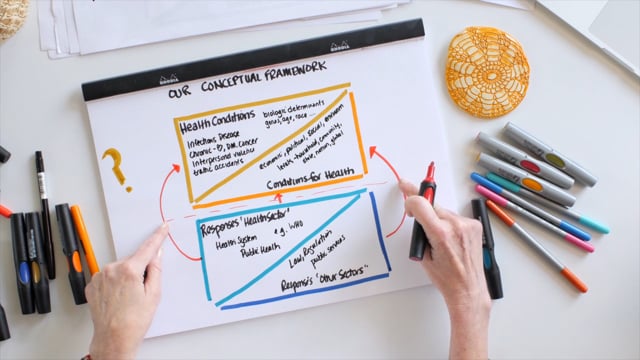 RHODIA
RHODIA
OUR CONCEPTUAL FRAMEWORK
Health Conditions
biologic determinants
genes, age, race ...
Infections Disease
Chronic - D, DM, Cancer
interpersonal violence
traffic accidents
economic, political, social, environm
levels - household, community,
state, nation, global
Conditions for Health
?
Responses 'Health Sector'
Health System
e.g. WHO
Public Health
Law, Regulation
public services
Responses "Other Sectors"